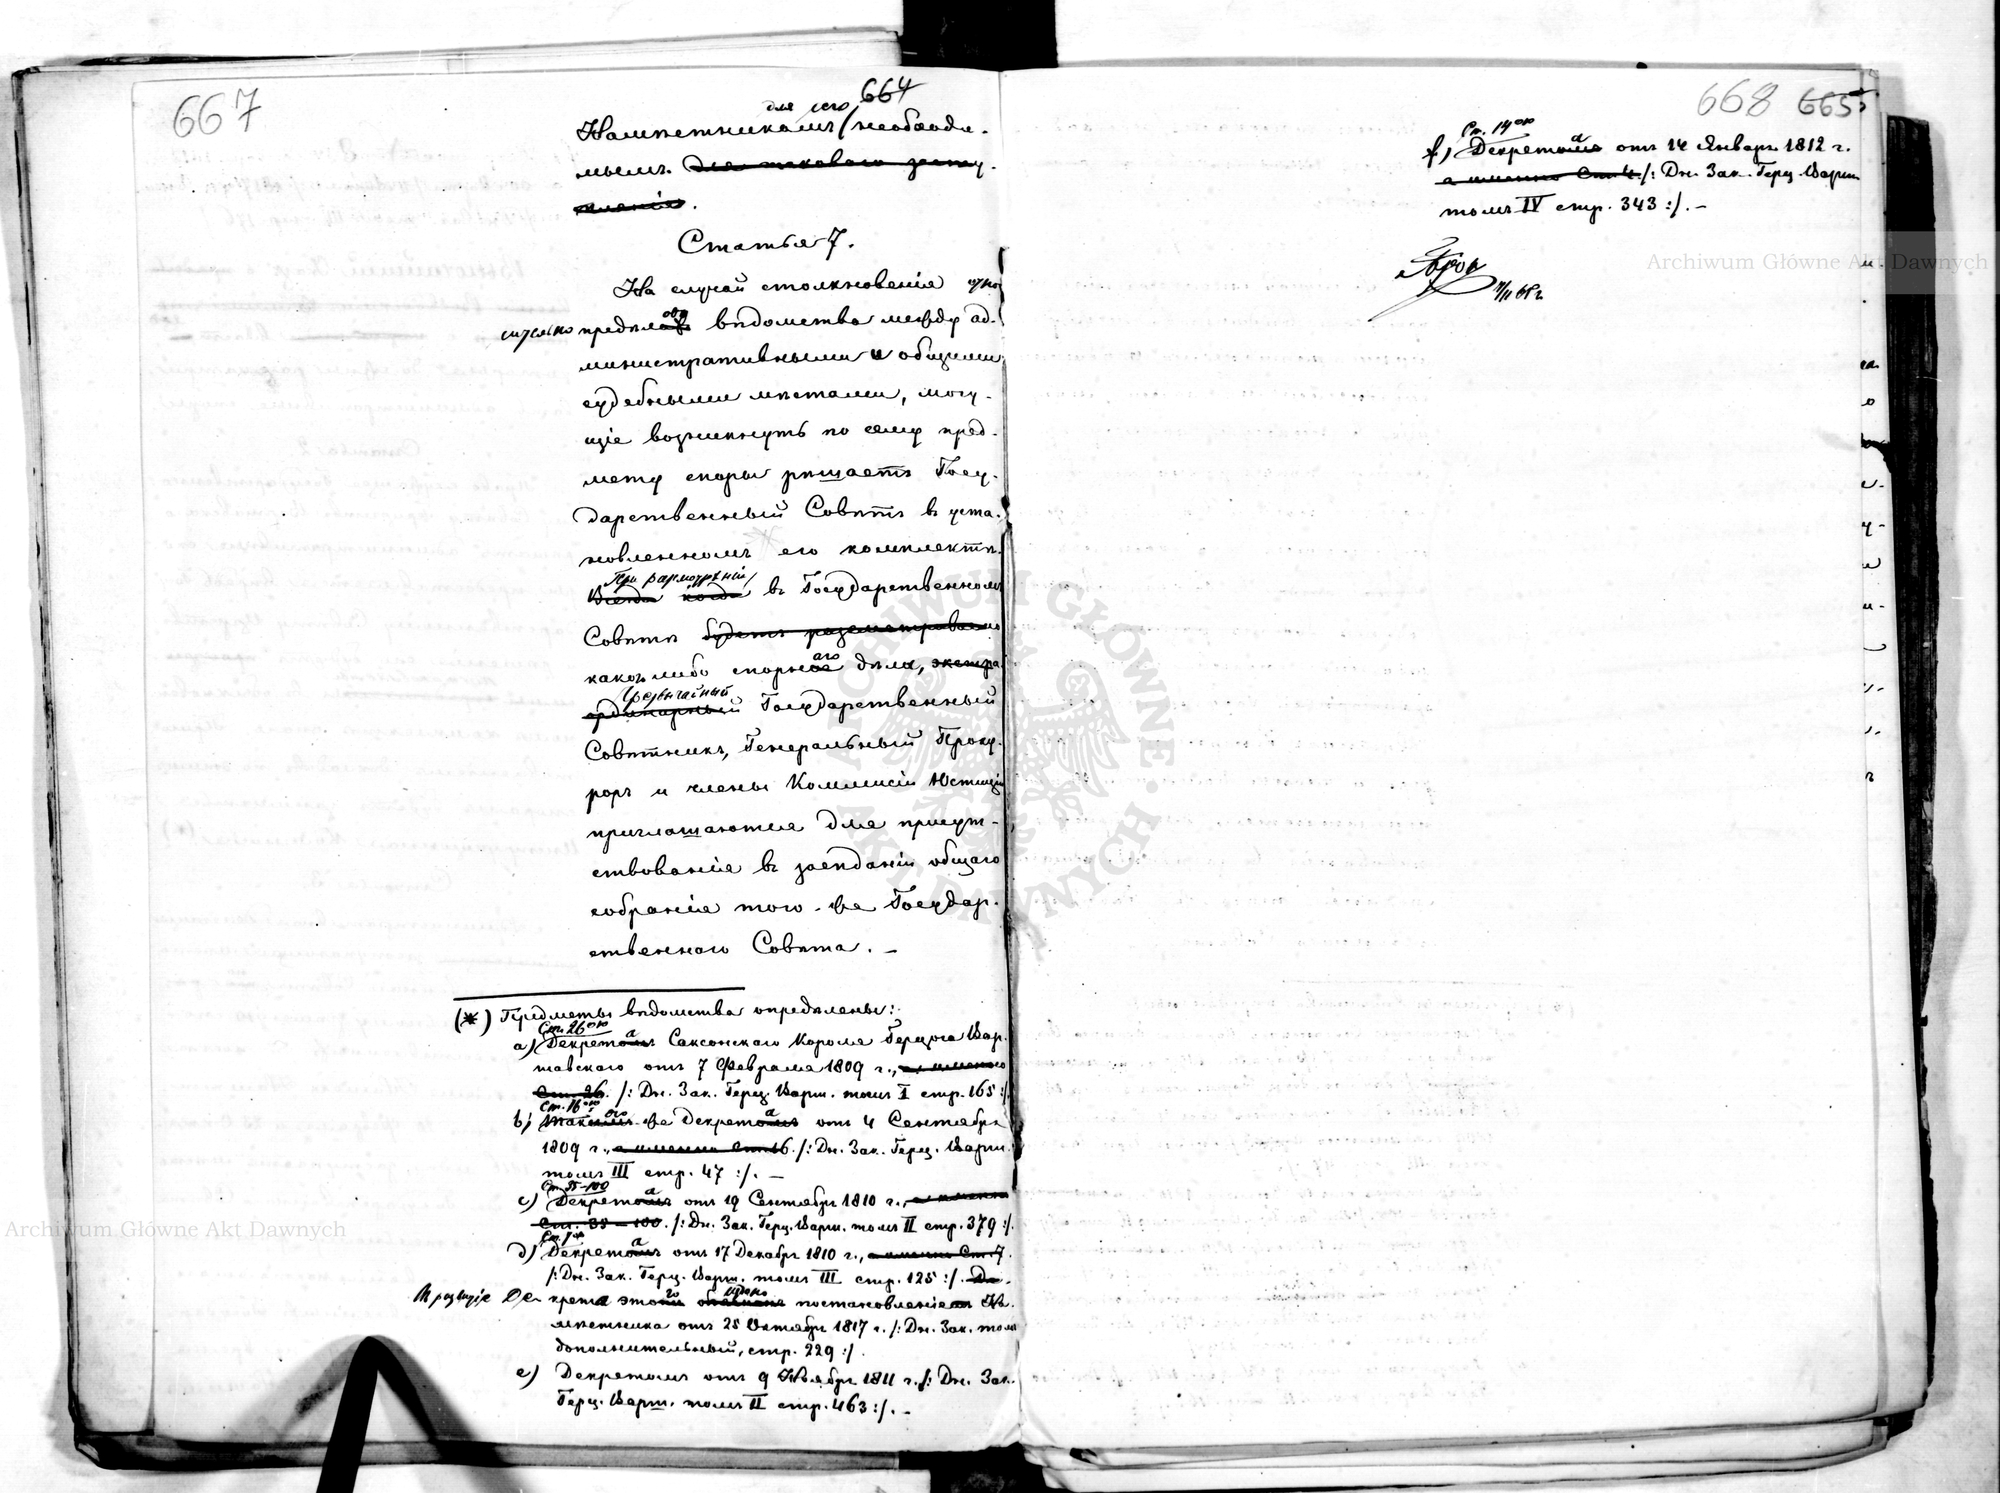 667
664
для сего
Намѣстникомъ (необходи-
мымъ. для таковаго засту-
пленія.
Статья 7.
На случай столкновенія относ
ительно предѣловъ вѣдомства между ад-
министративными и общими
судебными мѣстами, могу-
щіе возникнуть по сему пред-
мету споры рѣшаетъ Госу-
дарственный Совѣтъ въ уста-
новленномъ его комплектѣ.
При разсмотрѣніи
Всегда когда въ Государственномъ
Совѣтѣ будетъ разсматриваемо
какого либо спорнаго дѣла, экстра-
Чрезвычайный
ординарный Государственный
Совѣтникъ, Генеральный Проку-
роръ и члены Коммисіи Юстиціи
приглашаются для присут-
ствованія въ засѣданіи общаго
собранія того-же Государ-
ственнаго Совѣта. —
(*) Предметы вѣдомства опредѣлены:
Ст. 26ою
а) Декретомъ а Саксонскаго Короля Герцога Вар-
шавскаго отъ 7 Февраля 1809 г., а именно
Ст. 26. /: Дн. Зак. Герц. Варш. томъ I стр. 165 :/.
Ст. 16ою
b) Такимъ ого же Декретомъ а отъ 4 Сентября
1809 г., а именно Ст. 16. /: Дн. Зак. Герц. Варш.
томъ III стр. 47 :/. —
Ст. 35-100
c) Декретомъ а отъ 19 Сентября 1810 г., а именно
Ст. 35-100. /: Дн. Зак. Герц. Варш. томъ II стр. 379 :/.
Ст. 7ою
d) Декретомъ а отъ 17 Декабря 1810 г., а именно Ст. 7.
/: Дн. Зак. Герц. Варш. томъ III стр. 125 :/. Де-
Де- крета этого постановленіемъ На-
мѣстника отъ 25 Октября 1817 г. /: Дн. Зак. томъ
дополнительный, стр. 229 :/.
e) Декретомъ отъ 9 Ноября 1811 г. /: Дн. Зак.
Герц. Варш. томъ II стр. 463 :/. —
668 665
Ст. 14ою
f) Декретомъ а отъ 14 Января 1812 г.
а именно Ст. 4. /: Дн. Зак. Герц. Варш.
томъ IV стр. 343 :/. —
Archiwum Główne Akt Dawnych
ARCHIWUM GŁÓWNE AKT DAWNYCH
Archiwum Główne Akt Dawnych